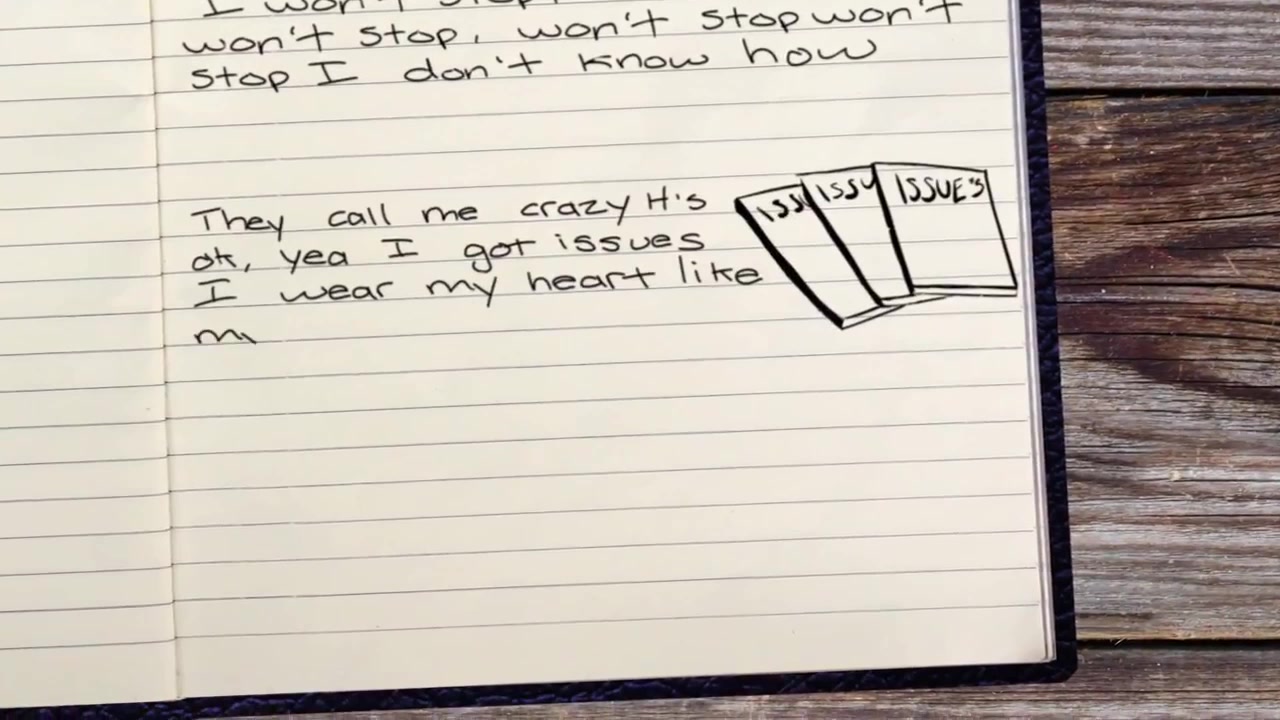 I won't stop,
won't stop, won't stop won't
stop I don't know how
They call me crazy it's
ok, yea I got issues
I wear my heart like
my
ISSU
ISSU
ISSUE'S